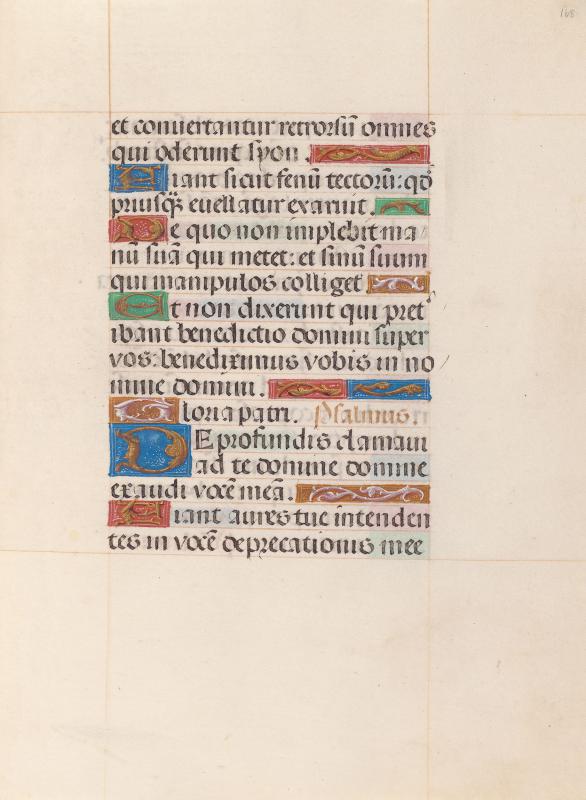 168
et conuertantur retrorsū omnes
qui oderunt syon.
Fiant sicut fenū tectorū: qd̄
priusq̄ȝ euellatur exaruit.
De quo non implebit ma
nū suā qui metet: et sinū suum
qui manipulos colliget.
Et non dixerunt qui preт᷒
ibant benedictio domini super
vos: benediximus vobis in no
mine domini.
Gloria patri. Psalmus.
DE profundis clamaui
ad te domine domine
exaudi vocē meā.
Fiant aures tue intenden
tes in vocē deprecationis mee